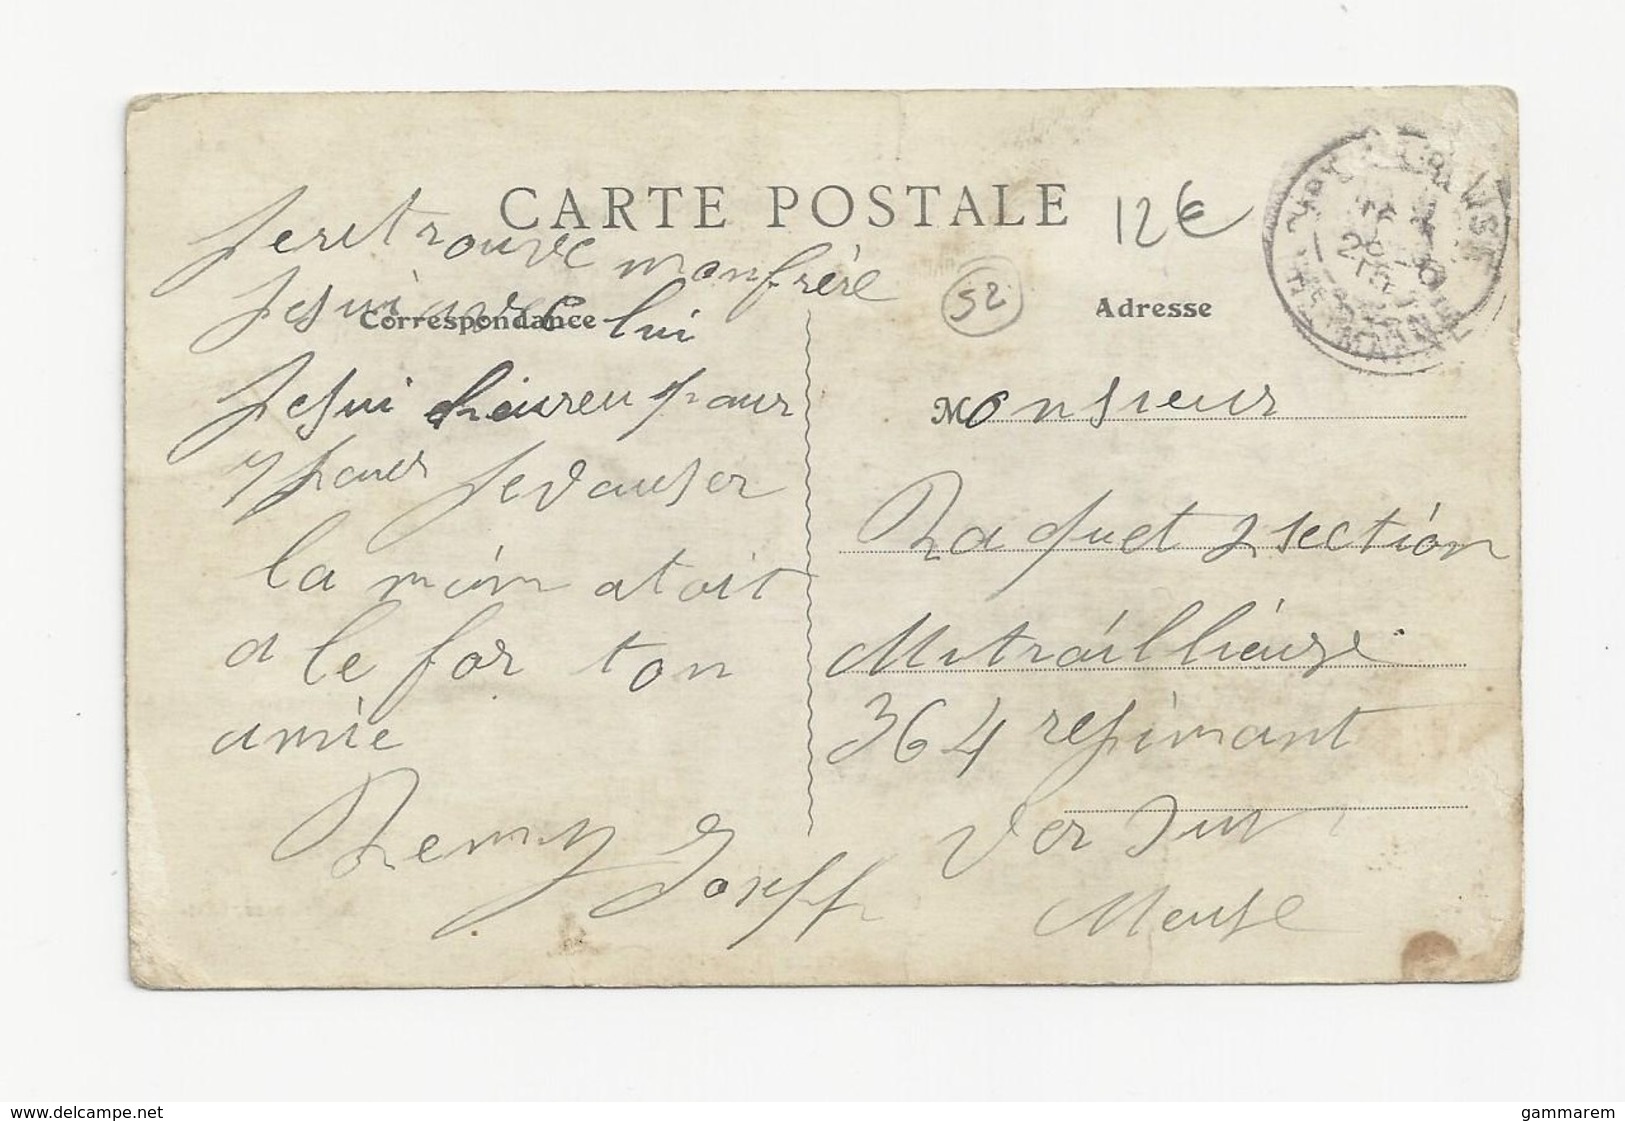 CARTE POSTALE
12€
52
Correspondance
Adresse
Jeretrouve monfrére
Jesui avec lui
Jesui heureu pour
7 jour
la min atoit
a le for ton
amie
Remy Joseff
Monsieur
Raquet 2 section
Mitrailleuse
364 regimant
Verdun
Meuse
HTE MARNE
www.delcampe.net
gammarem